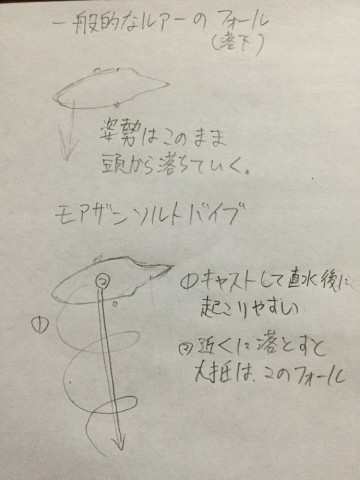 一般的なルアーのフォール
(落下)
姿勢はこのまま
頭から落ちていく。
モアザンソルトバイブ
①キャストして直水後に
起こりやすい
②近くに落とすと
大抵は、このフォール
②
①